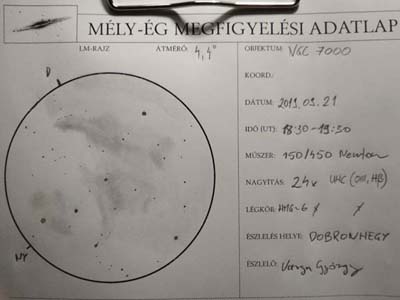 MÉLY-ÉG MEGFIGYELÉSI ADATLAP
LM-RAJZ
ÁTMÉRŐ: 4,4°
OBJEKTUM: NGC 7000
KOORD.:
DÁTUM: 2019.09.21
IDŐ (UT): 18:30-19:30
MŰSZER: 150/450 Newton
NAGYÍTÁS: 24x UHC (OIII, Hβ)
LÉGKÖR:
ÉSZLELÉS HELYE: DOBRONHEGY
ÉSZLELŐ: Varga György
D
NY